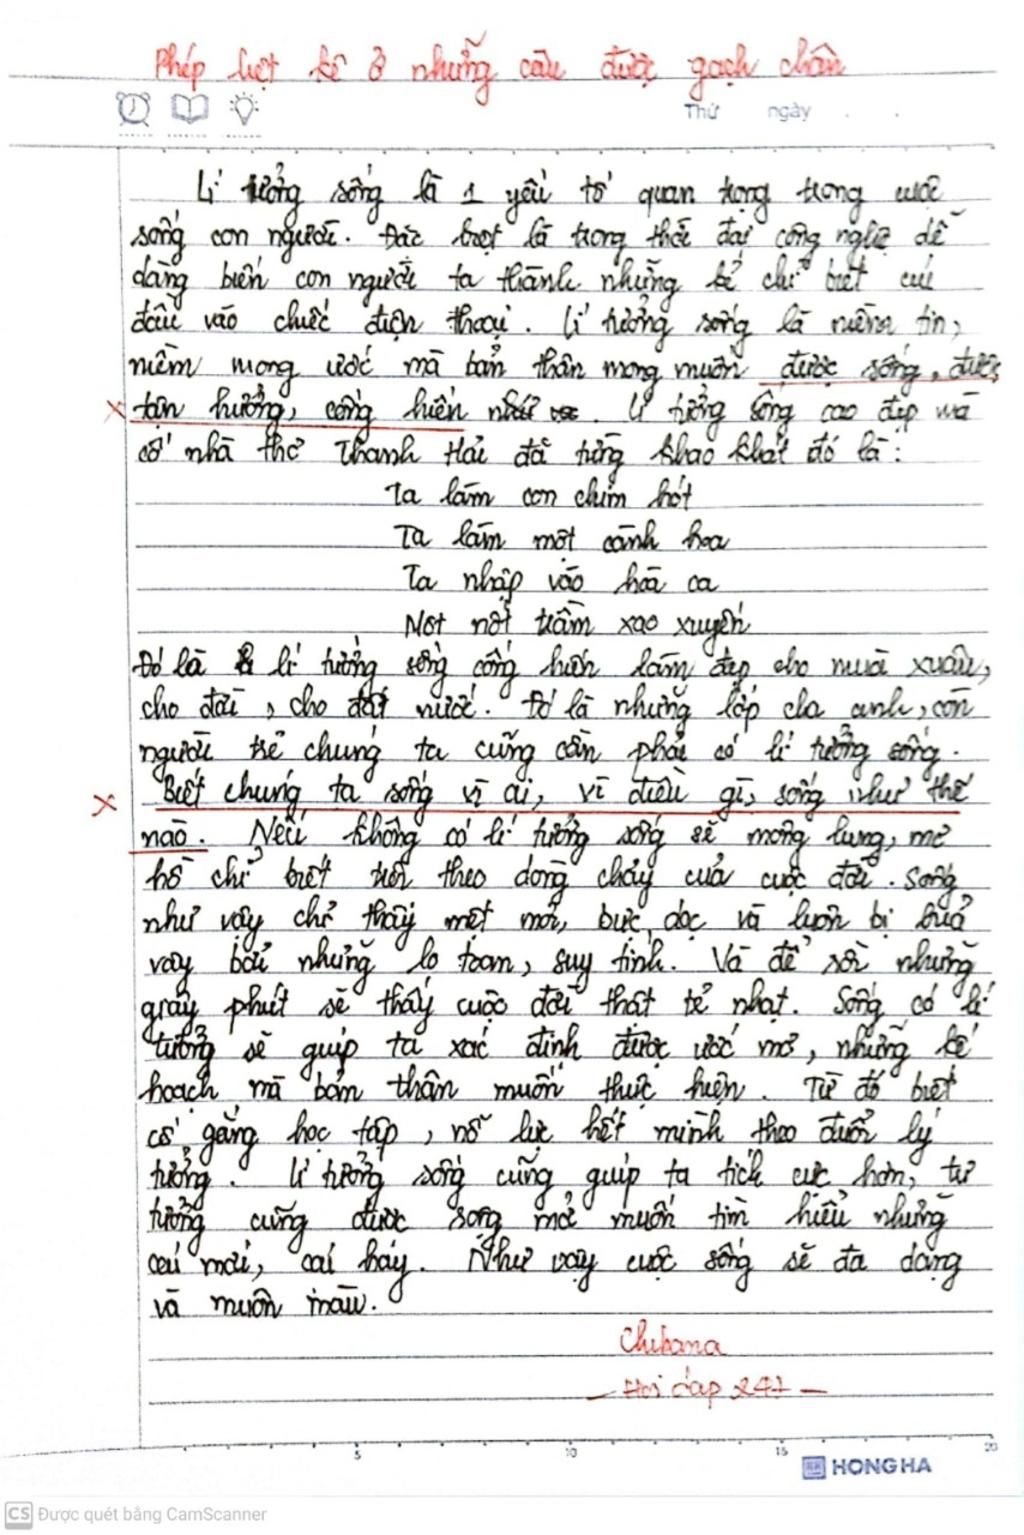 Phép liệt kê ở những câu được gạch chân
Thứ ngày . .
Lí tưởng sống là 1 yếu tố quan trọng trong cuộc
sống con người. Đặc biệt là trong thời đại công nghệ dễ
dàng biến con người ta thành những kẻ chỉ biết cúi
đầu vào chiếc điện thoại. Lí tưởng sống là niềm tin,
niềm mong ước mà bản thân mong muốn được sống, được
x tận hưởng, cống hiến. Lí tưởng sống cao đẹp mà
cố nhà thơ Thanh Hải đã từng khao khát đó là:
Ta làm con chim hót
Ta làm một cành hoa
Ta nhập vào hòa ca
Một nốt trầm xao xuyến
Đó là lí tưởng sống cống hiến làm đẹp cho mùa xuân,
cho đời, cho đất nước. Đó là những lớp cha anh, còn
người trẻ chúng ta cũng cần phải có lí tưởng sống.
x Biết chúng ta sống vì ai, vì điều gì, sống như thế
nào. Nếu không có lí tưởng sống sẽ mông lung, mơ
hồ chỉ biết trôi theo dòng chảy của cuộc đời. Sống
như vậy chỉ thấy mệt mỏi, bực dọc và luôn bị
vây bởi những lo toan, suy tính. Và để rồi những
giây phút sẽ thấy cuộc đời thật tẻ nhạt. Sống có lí
tưởng sẽ giúp ta xác định được ước mơ, những kế
hoạch mà bản thân muốn thực hiện. Từ đó biết
cố gắng học tập, nỗ lực hết mình theo đuổi lý
tưởng. Lí tưởng sống cũng giúp ta tích cực hơn, tư
tưởng cũng được mở muốn tìm hiểu những
cái mới, cái hay. Như vậy cuộc sống sẽ đa dạng
và muôn màu.
Chibana
- Hoi dap 247 -
5 10 15 20
HONG HA
CS Được quét bằng CamScanner